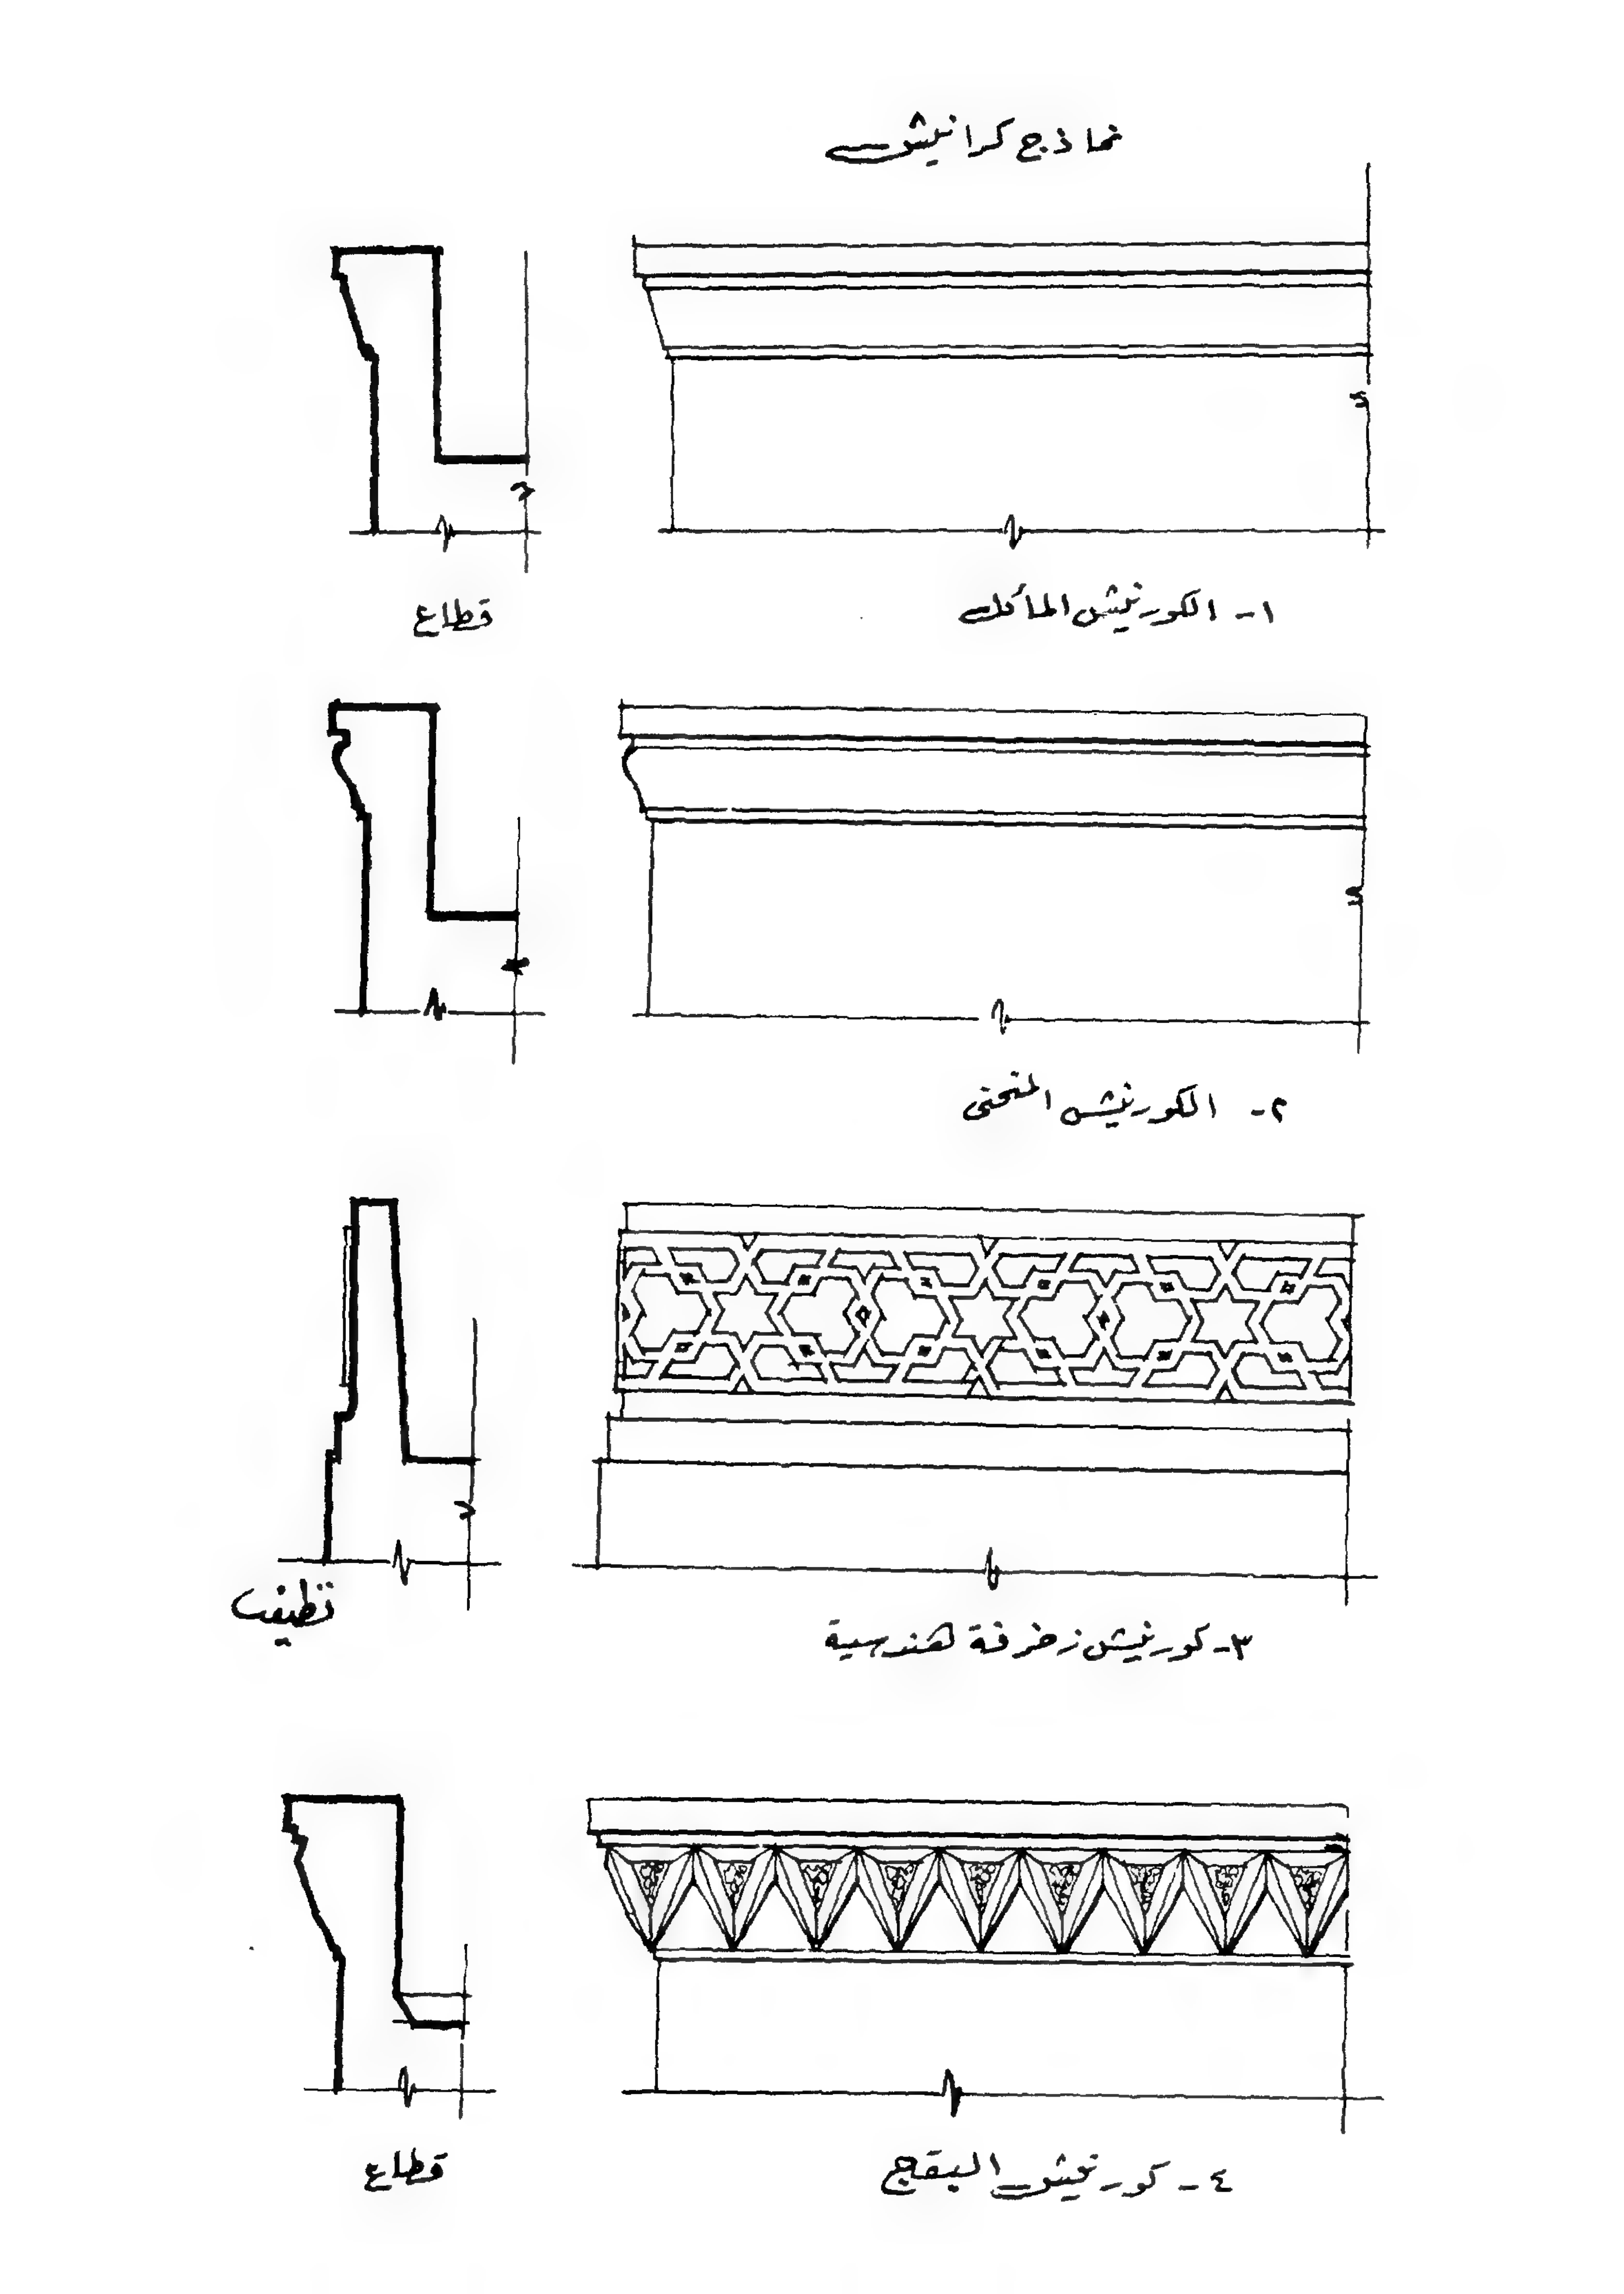 نماذج كرانيش
١- الكورنيش المائل
قطاع
٢- الكورنيش المنحنى
٣- كورنيش زخرفة هندسية
٤- كورنيش البقج
قطاع